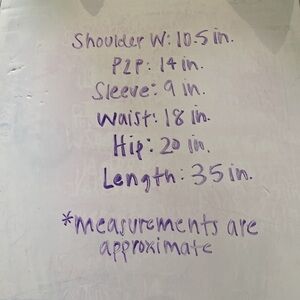 Shoulder W: 10.5 in.
P2P: 14 in.
Sleeve: 9 in.
Waist: 18 in.
Hip: 20 in.
Length: 35 in.
*measurements are
approximate